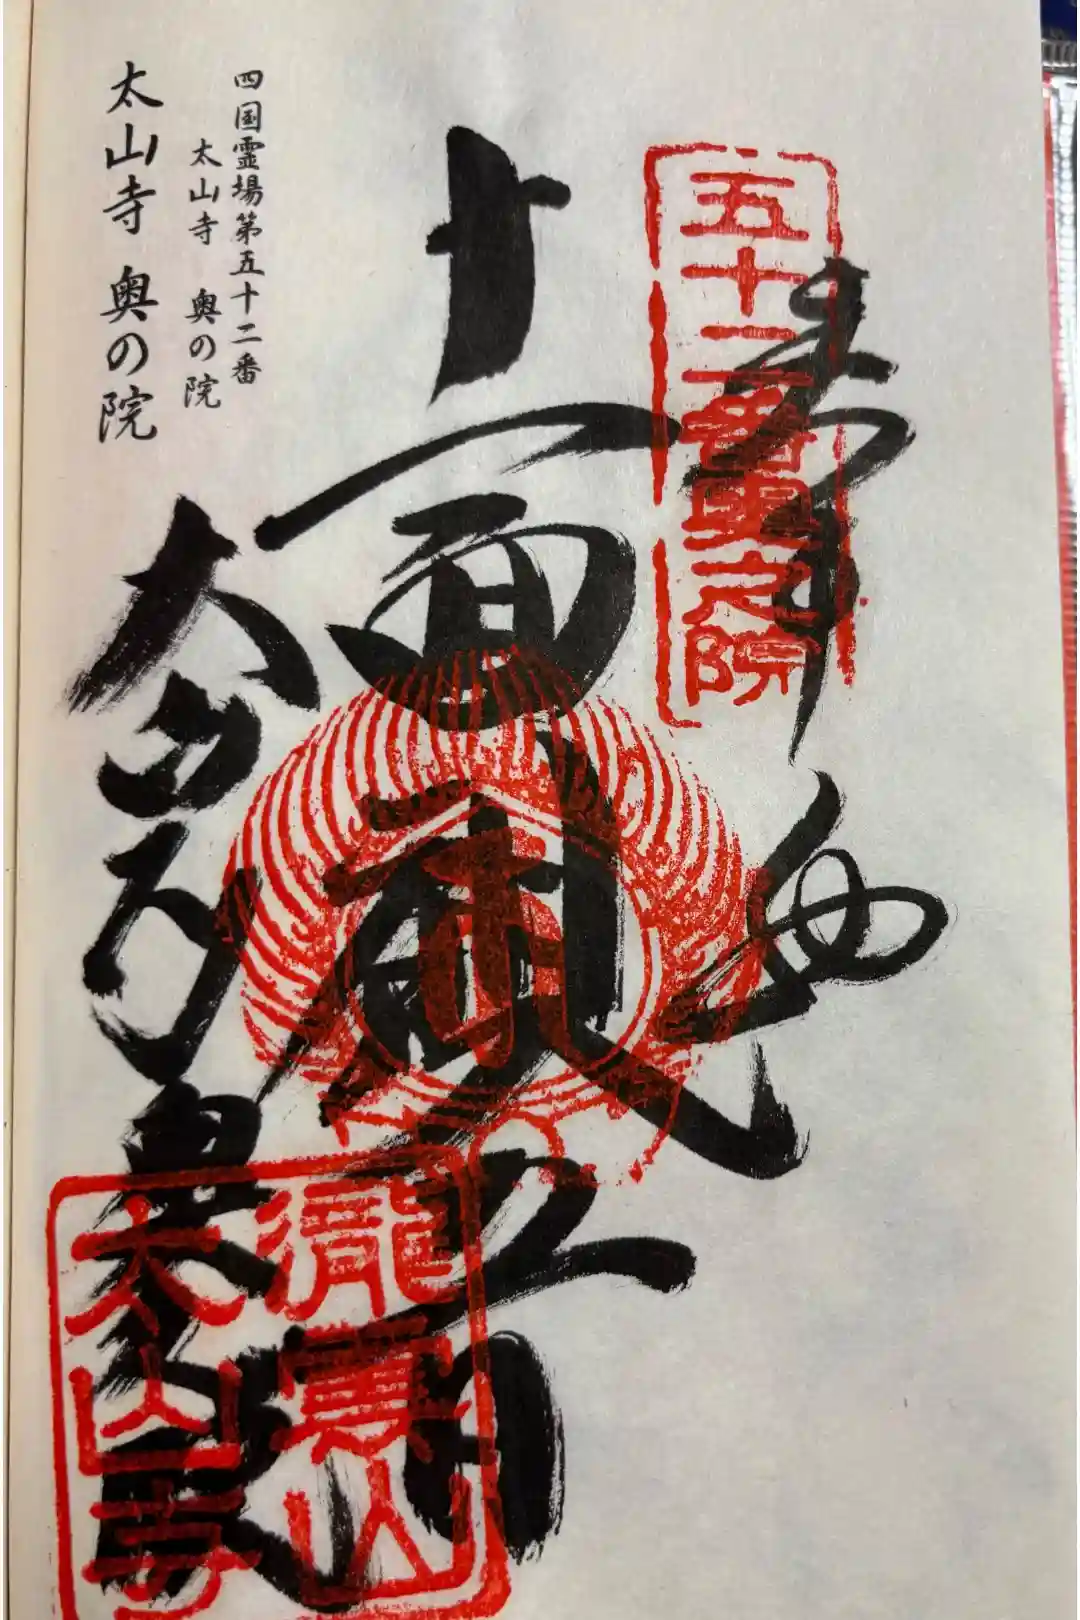 四国霊場第五十二番
太山寺 奥の院
太山寺 奥の院
五十二番奥之院
奉拝
十一面
太山寺奥
瀧雲山
太山寺